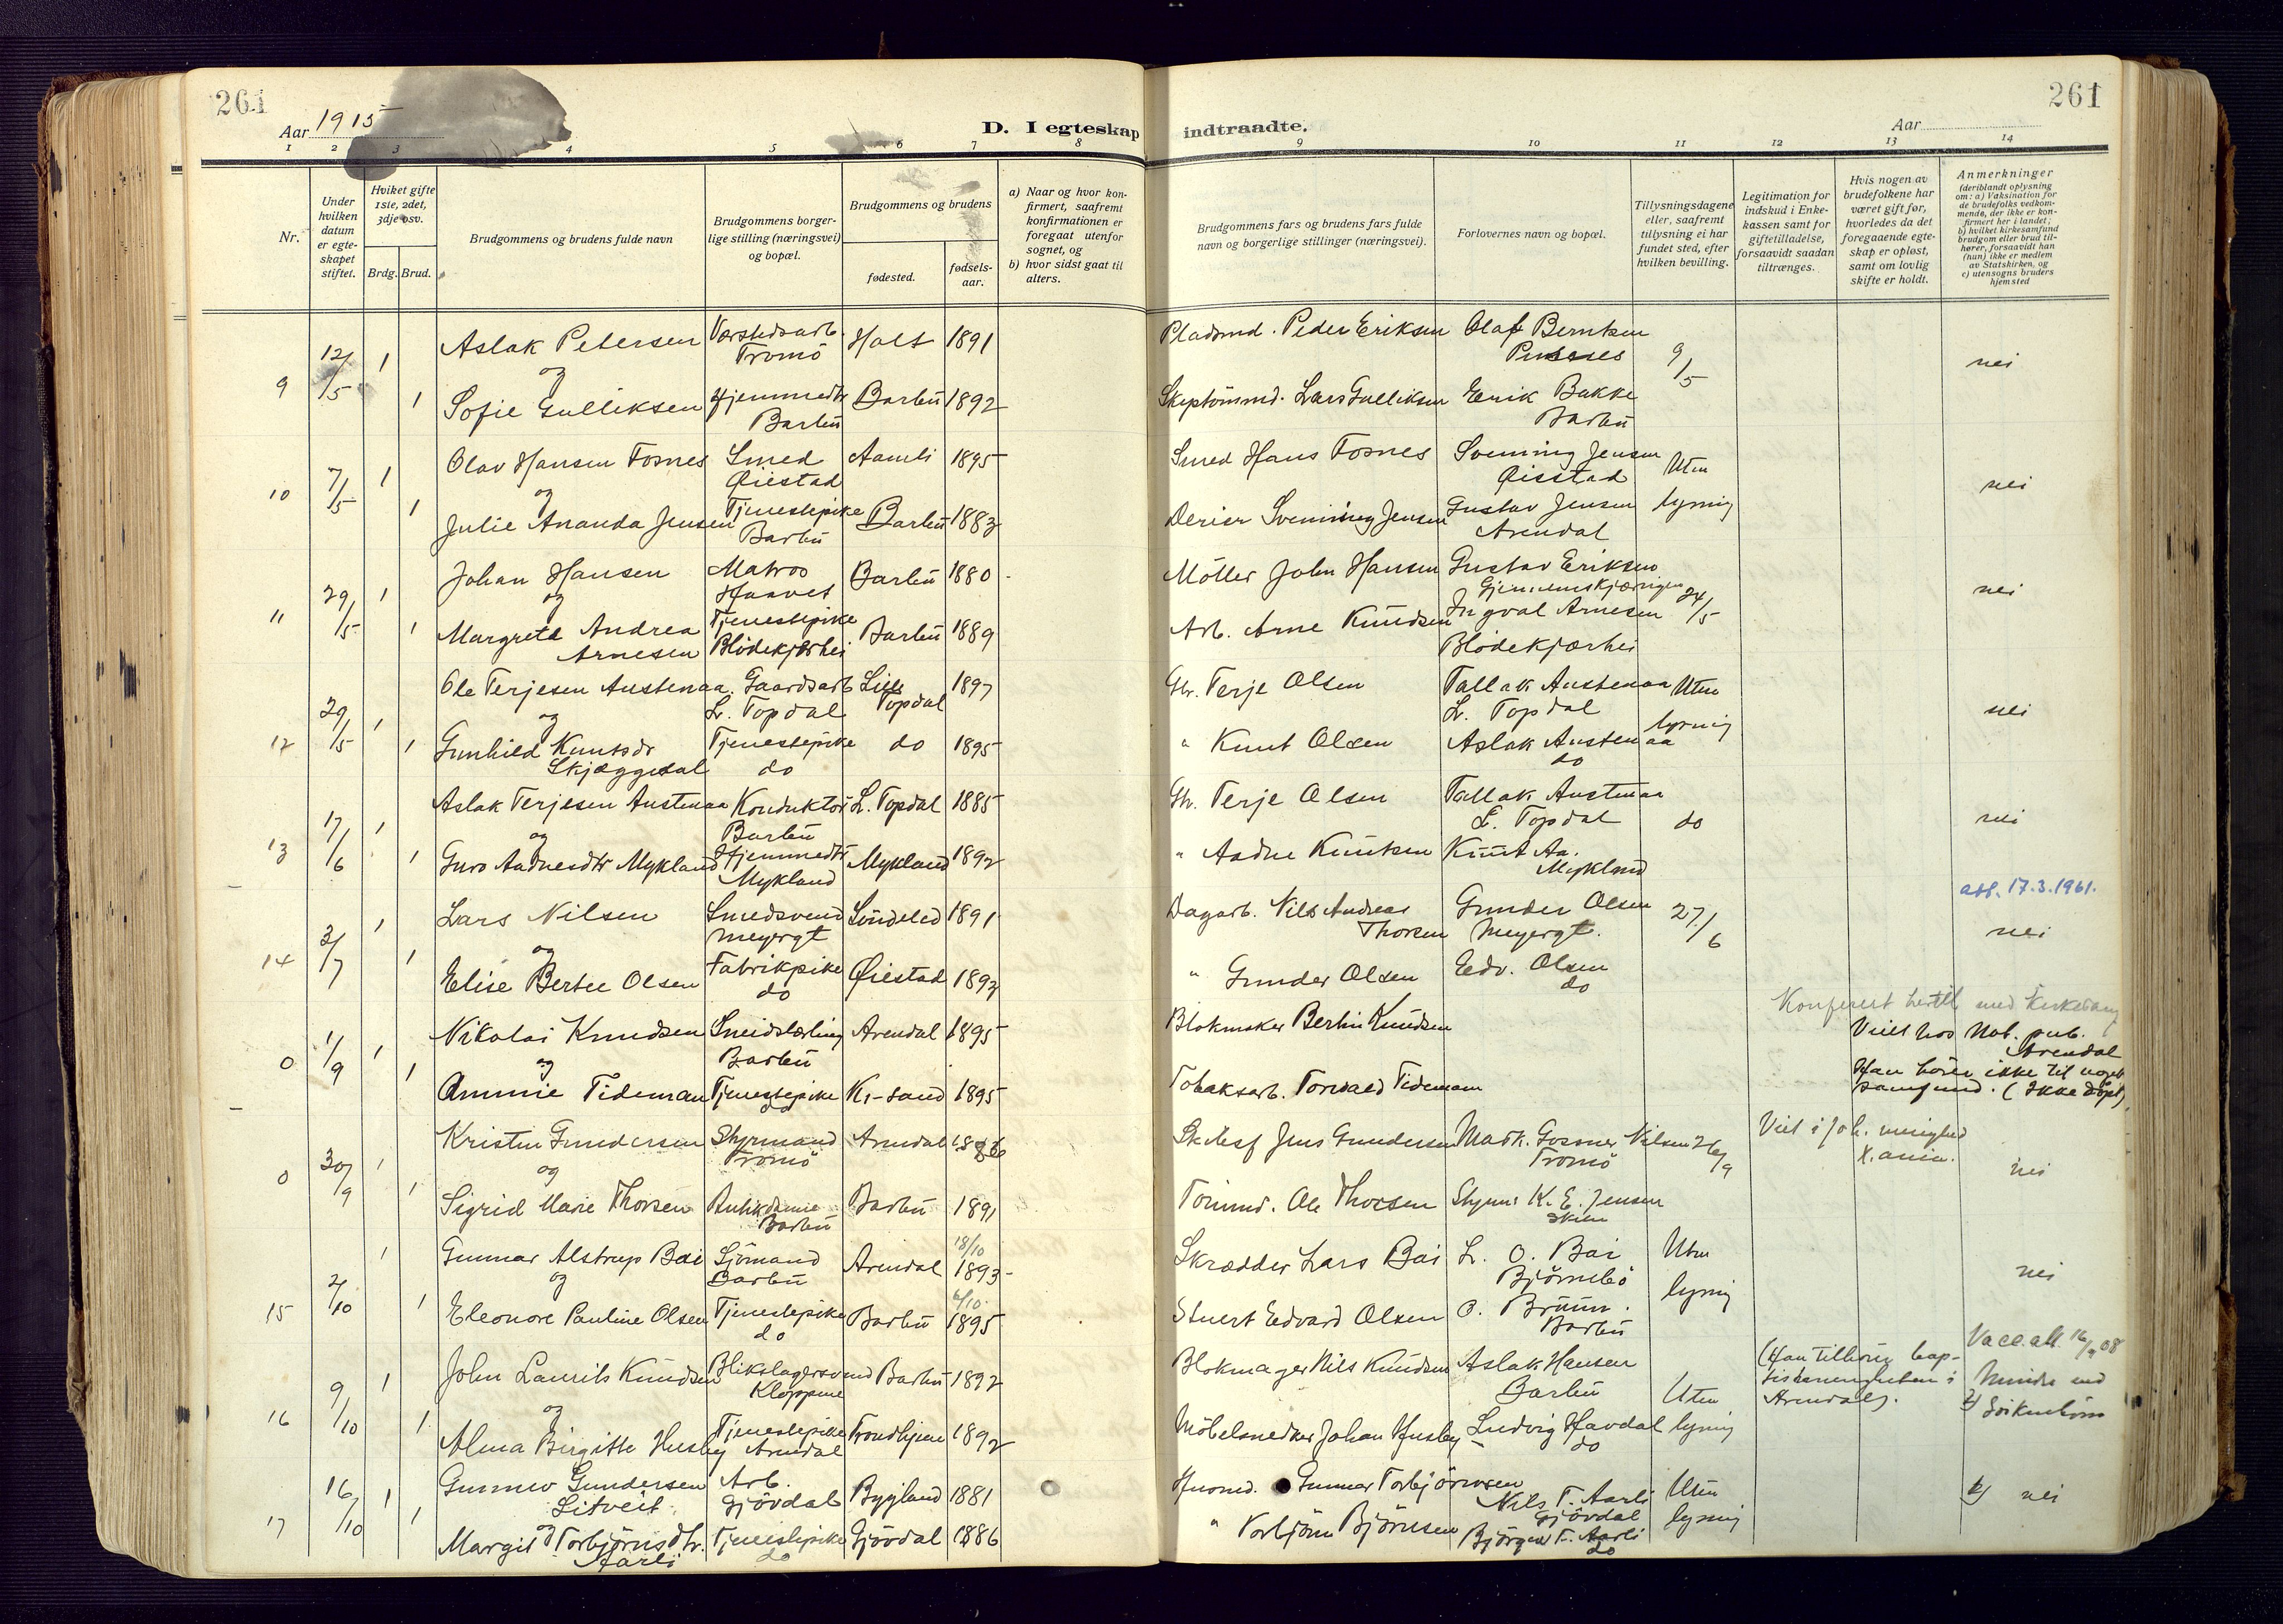 261
Aar 1915
D. I egteskap indtraadte.
Aar
261
1 2 3 4 5 6 7 8 9 10 11 12 13 14
Nr.
Under hvilken datum er egteskapet stiftet.
Hviket gifte 1ste, 2det, 3dje osv.
Brdg. Brud.
Brudgommens og brudens fulde navn
Brudgommens borgerlige stilling (næringsvei) og bopæl.
Brudgommens og brudens
fødested.
fødselsaar.
a) Naar og hvor konfirmert, saafremt konfirmationen er foregaat utenfor sognet, og
b) hvor sidst gaat til alters.
Brudgommens fars og brudens fars fulde navn og borgerlige stillinger (næringsvei).
Forlovernes navn og bopæl.
Tillysningsdagene eller, saafremt tillysning ei har fundet sted, efter hvilken bevilling.
Legitimation for indskud i Enkekassen samt for giftetilladelse, forsaavidt saadan tiltrænges.
Hvis nogen av brudefolkene har været gift før, hvorledes da det foregaaende egteskap er opløst, samt om lovlig skifte er holdt.
Anmerkninger
(deriblandt oplysning om: a) Vaksination for de brudefolks vedkommende, der ikke er konfirmert her i landet; b) hvilket kirkesamfund brudgom eller brud tilhører, forsaavidt han (hun) ikke er medlem av Statskirken, og c) utensogns bruders hjemsted
9 12/5 1 Aslak Petersen Værstedsarb. Tromö Holt 1891 Pladsmd. Peder Eriksen Olaf Berntsen 9/5 nei
og
1 Sofie Gulliksen Hjemmedtr Barbu Barbu 1892 Skiptömmd. Lars Gulliksen Erik Bakke Barbu
10 7/5 1 Olav Hansen Fosnes Smed Øiestad Aamli 1895 Smed Hans Fosnes Svenning Jensen Øiestad Uten lysning nei
og
1 Julie Ananda Jensen Tjenestepike Barbu Barbu 1883 Svenning Jensen Gustav Jensen Arendal
11 29/5 1 Johan Hansen Matros Haavet Barbu 1880 Möller John Hansen Gustav Eriksen Gjennemskjæringen 24/5 nei
og
1 Margrete Andrea Arnesen Tjenestepike Blödekjærhei Barbu 1889 Arb. Arne Knudsen Ingval Arnesen Blödekjærhei
12 29/5 1 Ole Terjesen Austenaa Gaardsarb L. Topdal Lille Topdal 1897 Gbr. Terje Olsen Tallak Austenaa L. Topdal Uten lysning nei
og
1 Gunhild Knutsdr Skjæggedal Tjenestepike do do 1895 " Knut Olsen Aslak Austenaa do
13 17/6 1 Aslak Terjesen Austenaa Konduktör Barbu L. Topdal 1885 Gbr. Terje Olsen Tallak Austenaa L. Topdal do nei
og
1 Guro Aadnesdtr Mykland Hjemmedtr Mykland Mykland 1892 " Aadne Knutsen Knut Aa. Mykland
att. 17.3.1961.
14 3/7 1 Lars Nilsen Smedsvend Meyergt Söndeled 1891 Dagarb. Nils Andreas Thorsen Gunder Olsen Meyergt. 27/6 nei
og
1 Elise Bertee Olsen Fabrikpike do Øiestad 1893 " Gunder Olsen Edv. Olsen do
Konferert hertil med kirkebang
0 1/9 1 Nikolai Knudsen Smidslærling Barbu Arendal 1895 Blokmaker Bertin Knudsen Viet hos Not. pub. Arendal
og
1 Ammie Tideman Tjenestepike do Kr-sand 1895 Tobaksarb. Torvald Tidemann Han hörer ikke til noget samfund. (Ikke döpt)
0 30/9 1 Kristen Gundersen Styrmand Tromö Arendal 1886 Jens Gundersen Mask. Gosmer Nilsen Tromö 26/9 Viet i Joh. menighed X.ania. nei
og
1 Sigrid Marie Thorsen Butikdame Barbu Barbu 1891 Tömmd. Ole Thorsen Styrm. K. E. Jensen Skien
15 2/10 1 Gunnar Alstrup Bai Sjömand Barbu Arendal 18/10 1893 Skrædder Lars Bai L. O. Bai Björnebö Uten lysning nei
og
1 Eleonore Pauline Olsen Tjenestepike do Barbu 6/10 1895 Stuert Edvard Olsen O. Bruun. Barbu
16 9/10 1 John Laurits Knudsen Blikslagersvend Kloppene Barbu 1892 Blokmager Nils Knudsen Aslak Hansen Barbu Uten lysning (Han tilhörer baptistmenigheten i Arendal). Vacc.att. 16/9 08
og
1 Alma Birgitte Husby Tjenestepike Arendal Trondhjem 1892 Möbelsnedker Johan Husby Ludvig Havdal do
17 16/10 1 Gunnuv Gundersen Litveit Arb. Gjövdal Bygland 1881 Husmd. Gunnar Torbjörnsen Nils T. Aarli Gjövdal Uten lysning nei
og
1 Margit Torbjörnsdtr. Aarli Tjenestepike do Gjövdal 1886 " Torbjörn Björnsen Björgen T. Aarli do